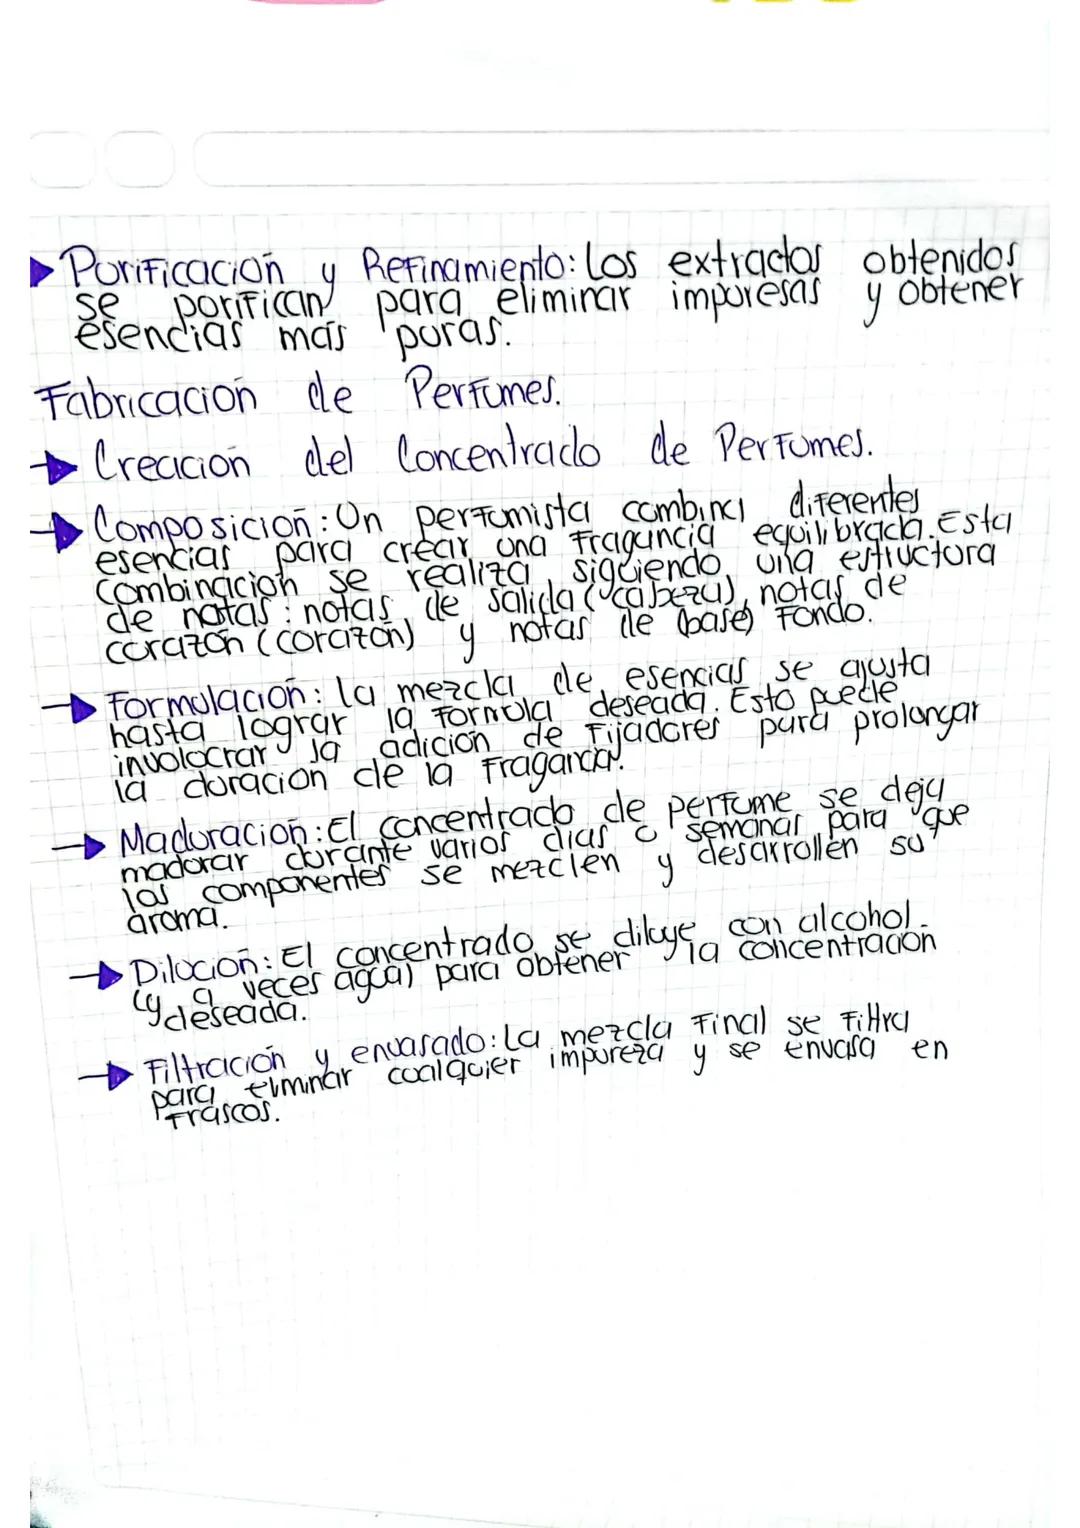 Purificación y Refinamiento: Los extractos obtenidos
se purifican para eliminar impuresas y obtener
esencias más puras.
Fabricación de Perfumes.
Creación del Concentrado de Perfumes.
Composición: Un perfumista combina diferentes
esencias para crear una fragancia equilibrada. Esta
combinación se realiza siguiendo una estructura
de notas: notas de salida (cabeza), notas de
corazón (corazón) y notas de (base) Fondo.
Formulación: la mezcla de esencias se ajusta
hasta lograr la formula deseada. Esto puede
involucrar la adición de fijadores para prolongar
la duración de la Fragancia.
Maduración: El concentrado de perfume se deja
madurar durante varios dias o semanas para que
los componentes se mezclen y desarrollen su
aroma.
Dilución: El concentrado se diluye con alcohol.
(y a veces agua) para obtener la concentración
deseada.
Filtración y envasado: La mezcla Final se Filtra
para elminar cualquier impureza y se envasa en
Frascos.